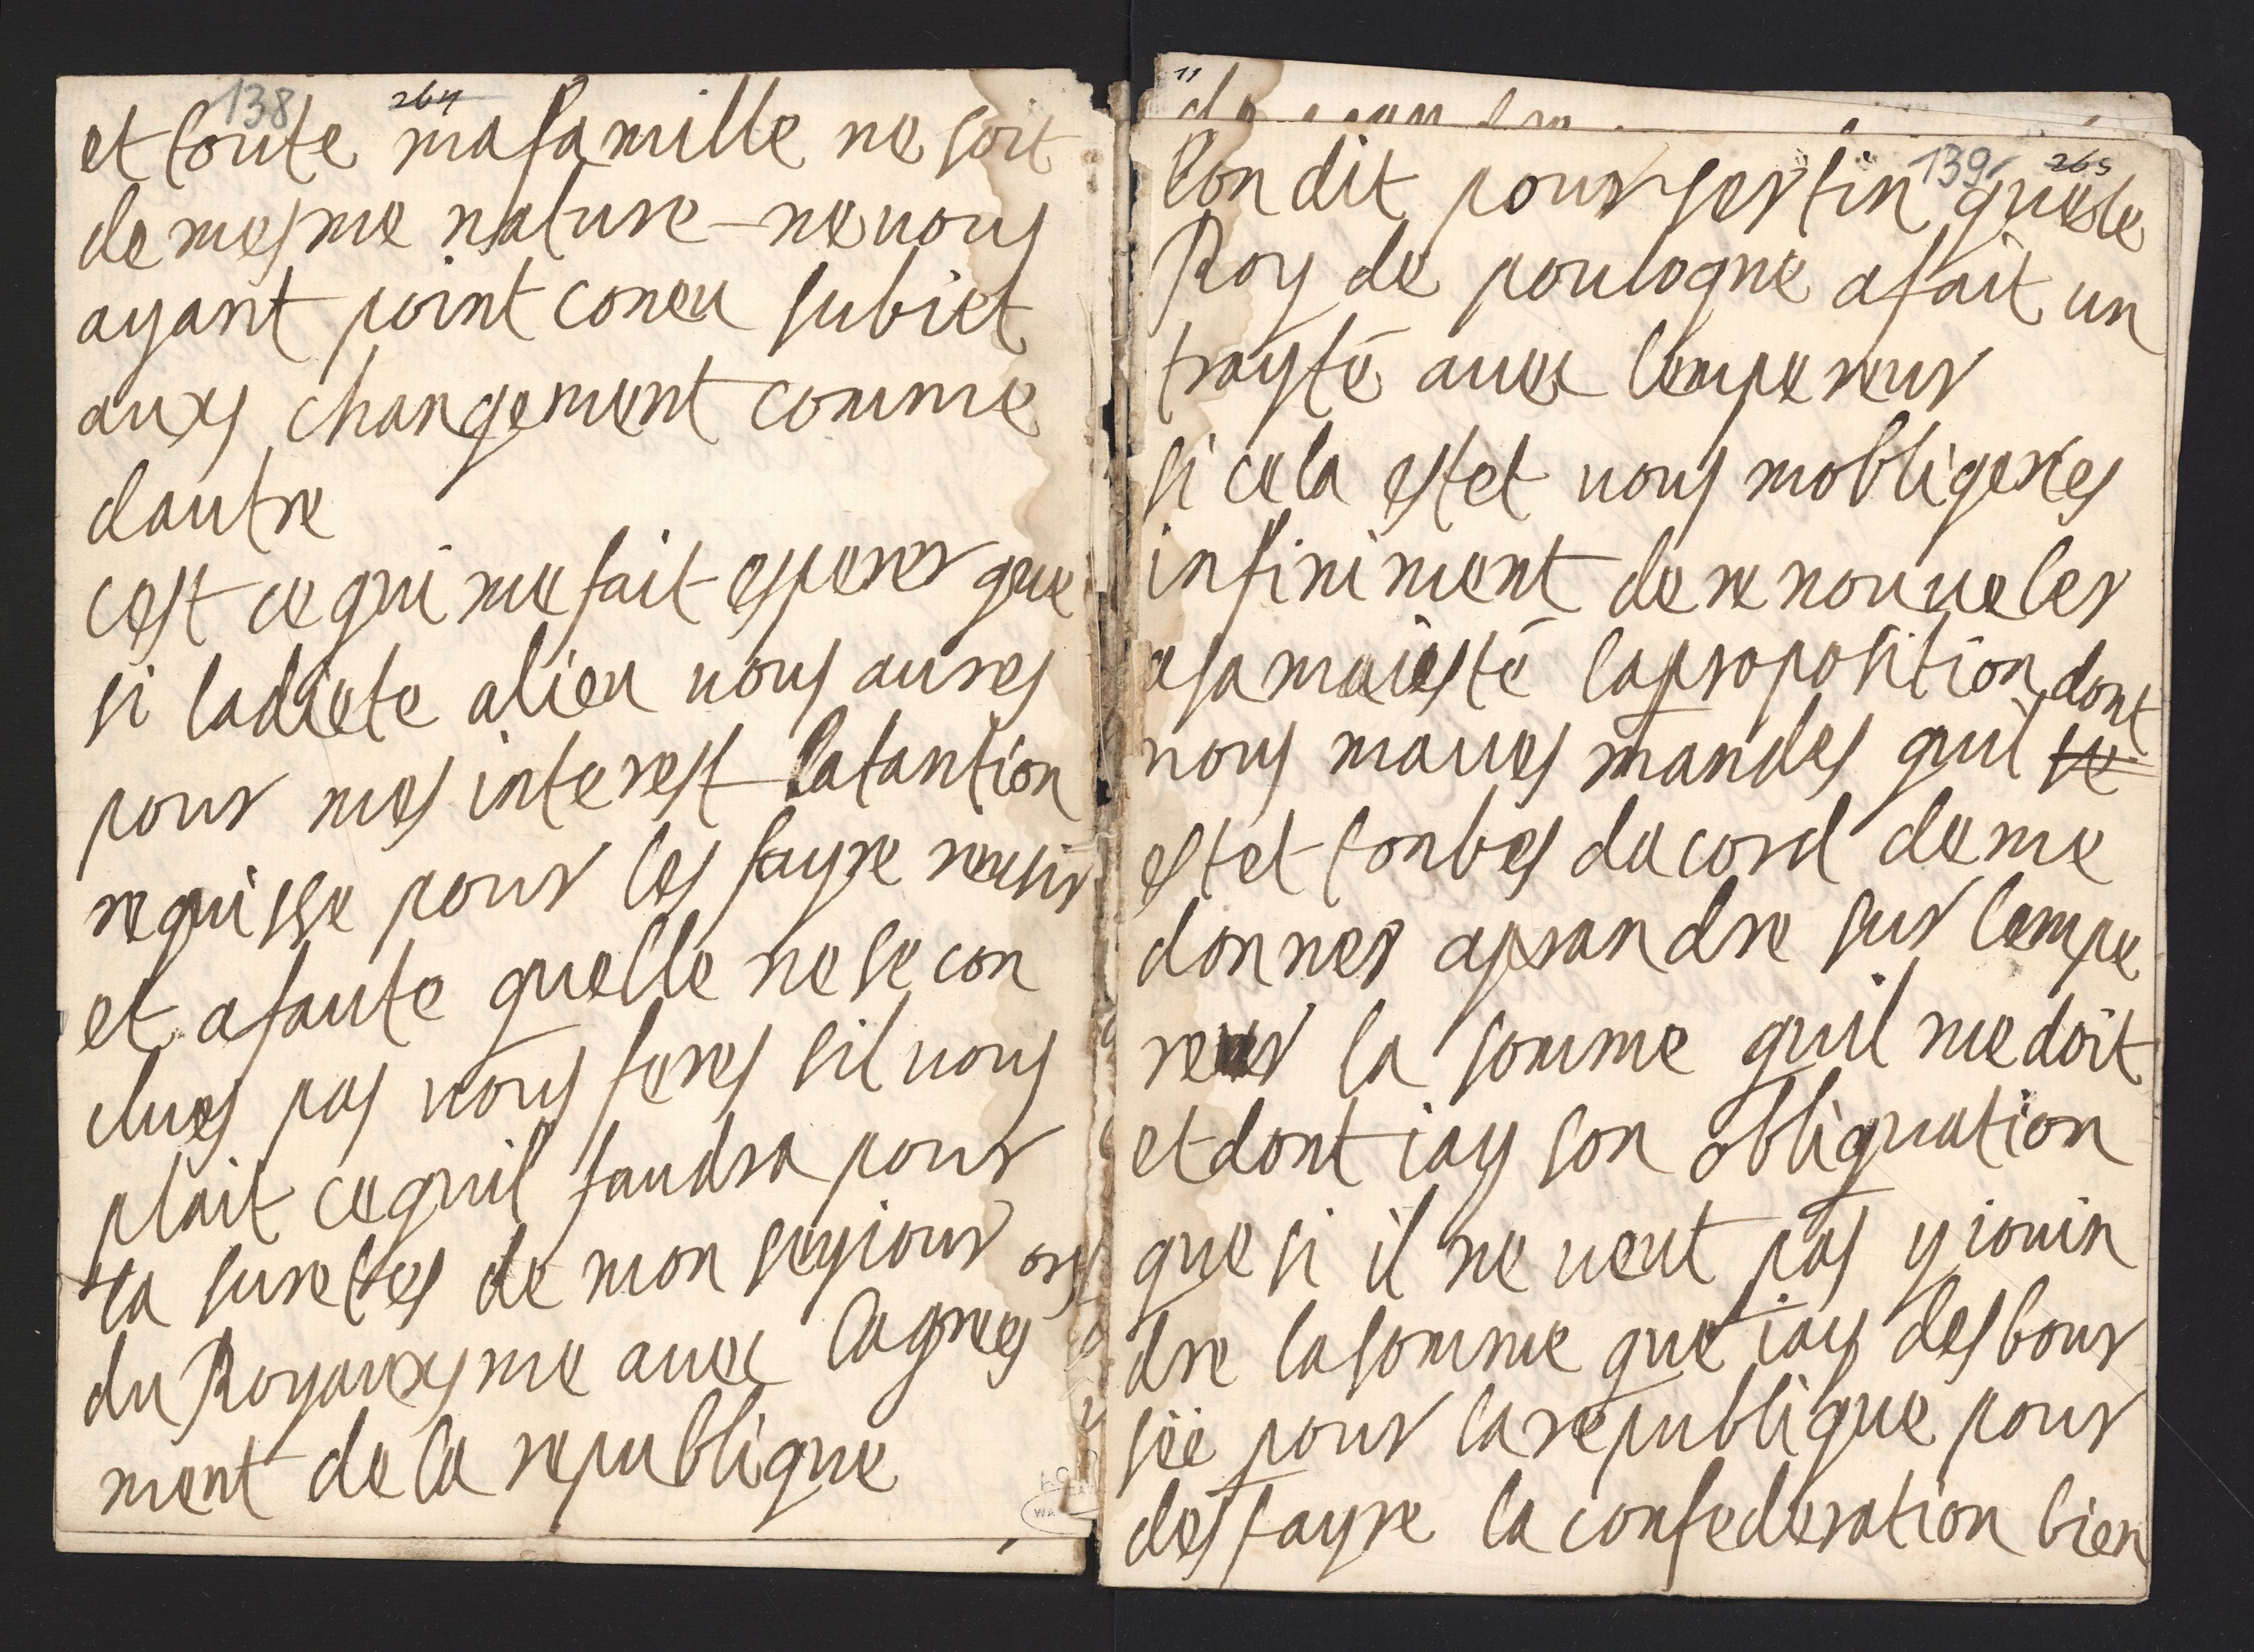 138 264
et toute ma famille ne soit
de mesme nature - ne vous
ayant point coneu subiet
auxs changement comme
dautre
cest ce qui me fait esperer que
si ladiete alieu vous aures
pour mes interest latantion
requisse pour les fayre reusir
et afaute quelle ne se con
clues pas vous feres sil vous
plait ce quil faudra pour
la suretes de mon seyiour ors
du Royauxsme avec lagrees
ment de la republique
139 265
lon dit pour sertin que le
Roy de poulogne afait un
trayté avec lempereur
si cela estet vous mobligeries
infiniment de renouveler
a sa maiesté la proposition dont
vous maves mandes quil se
estet tonbes dacord de me
donner aprandre sur lempe
reur la somme quil me doit
et dont iay son obliguation
que si il ne veut pas y iouin
dre la somme que iay desbour
sée pour la republique pour
desfayre la confederation bien